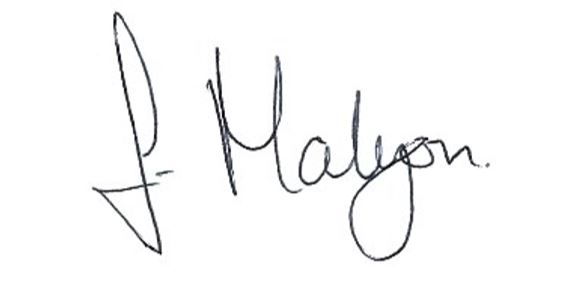 J. Malyon.